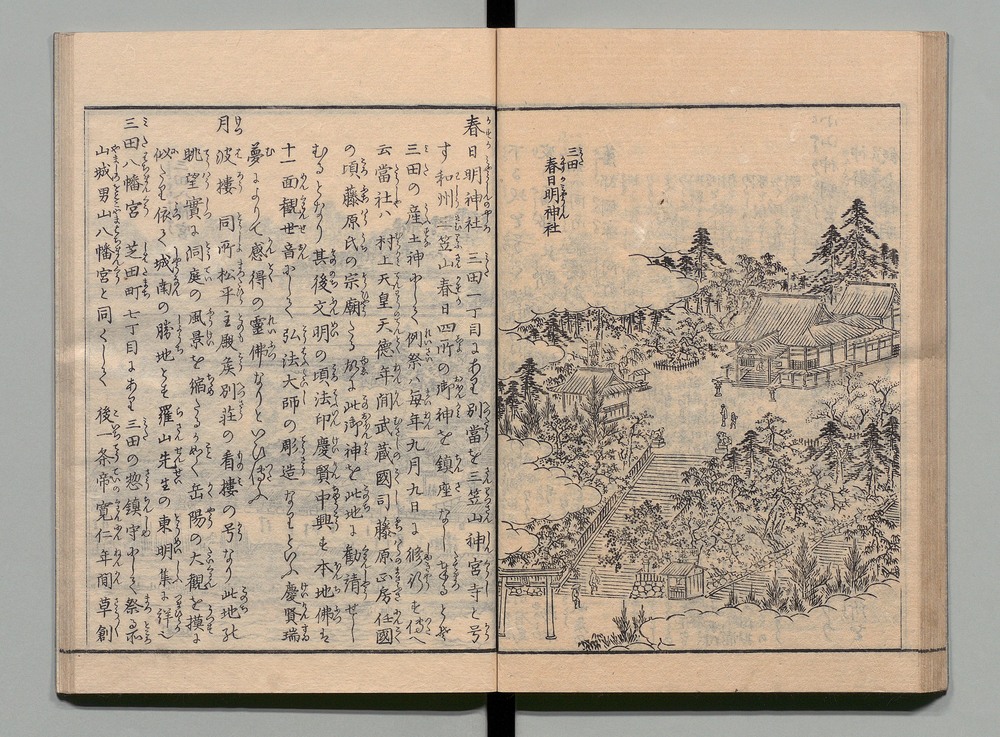 三田
春日明神社
春日明神社 三田一丁目にあり別當を三笠山神宮寺と号
す和州三笠山春日四所の御神を鎮座なし奉るとぞ
三田の産土神にして例祭ハ毎年九月九日に修行を傳へ
云當社ハ 村上天皇天徳年間武蔵國司藤原正房任國
の頃藤原氏の宗廟たる故に此御神を此地に勧請せし
むるとなり其後文明の頃法印慶賢中興を本地佛は
十一面観世音にして弘法大師の彫造なりといふ慶賢瑞
夢によりて感得の靈佛なりといひ傳ふ
月波樓 同所松平主殿侯別荘の看樓の号なり此地の
眺望實に洞庭の風景を縮るかめく岳陽の大觀を摸に
似たり依て城南の勝地とす羅山先生の東明集に詳之
三田八幡宮 芝田町七丁目にあり三田の惣鎮守にして祭る所
山城男山八幡宮と同しく 後一条帝寛仁年間草創